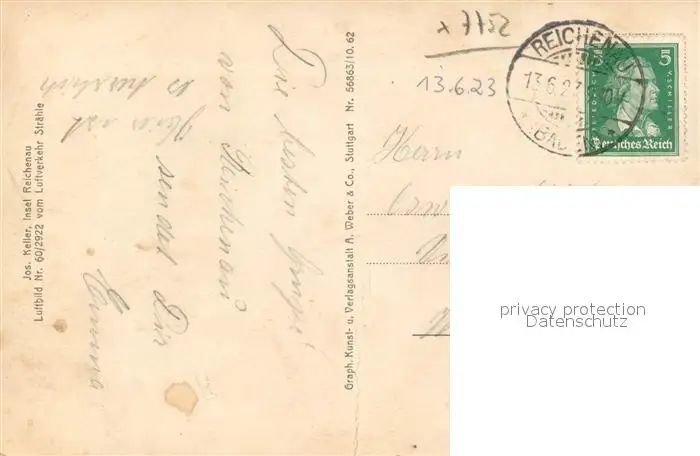 x 7752
REICHENAU
13.6.2
(BADEN)
5
FRIEDRICH V. SCHILLER
Deutsches Reich
13.6.23
Herrn
Die besten Grüße
von Reichenau
sendet Dir
Emma
Hier ist
es herrlich
Graph. Kunst- u. Verlagsanstalt A. Weber & Co., Stuttgart Nr. 56863/10. 62
Jos. Keller, Insel Reichenau
Luftbild Nr. 60/2922 vom Luftverkehr Strähle
privacy protection
Datenschutz